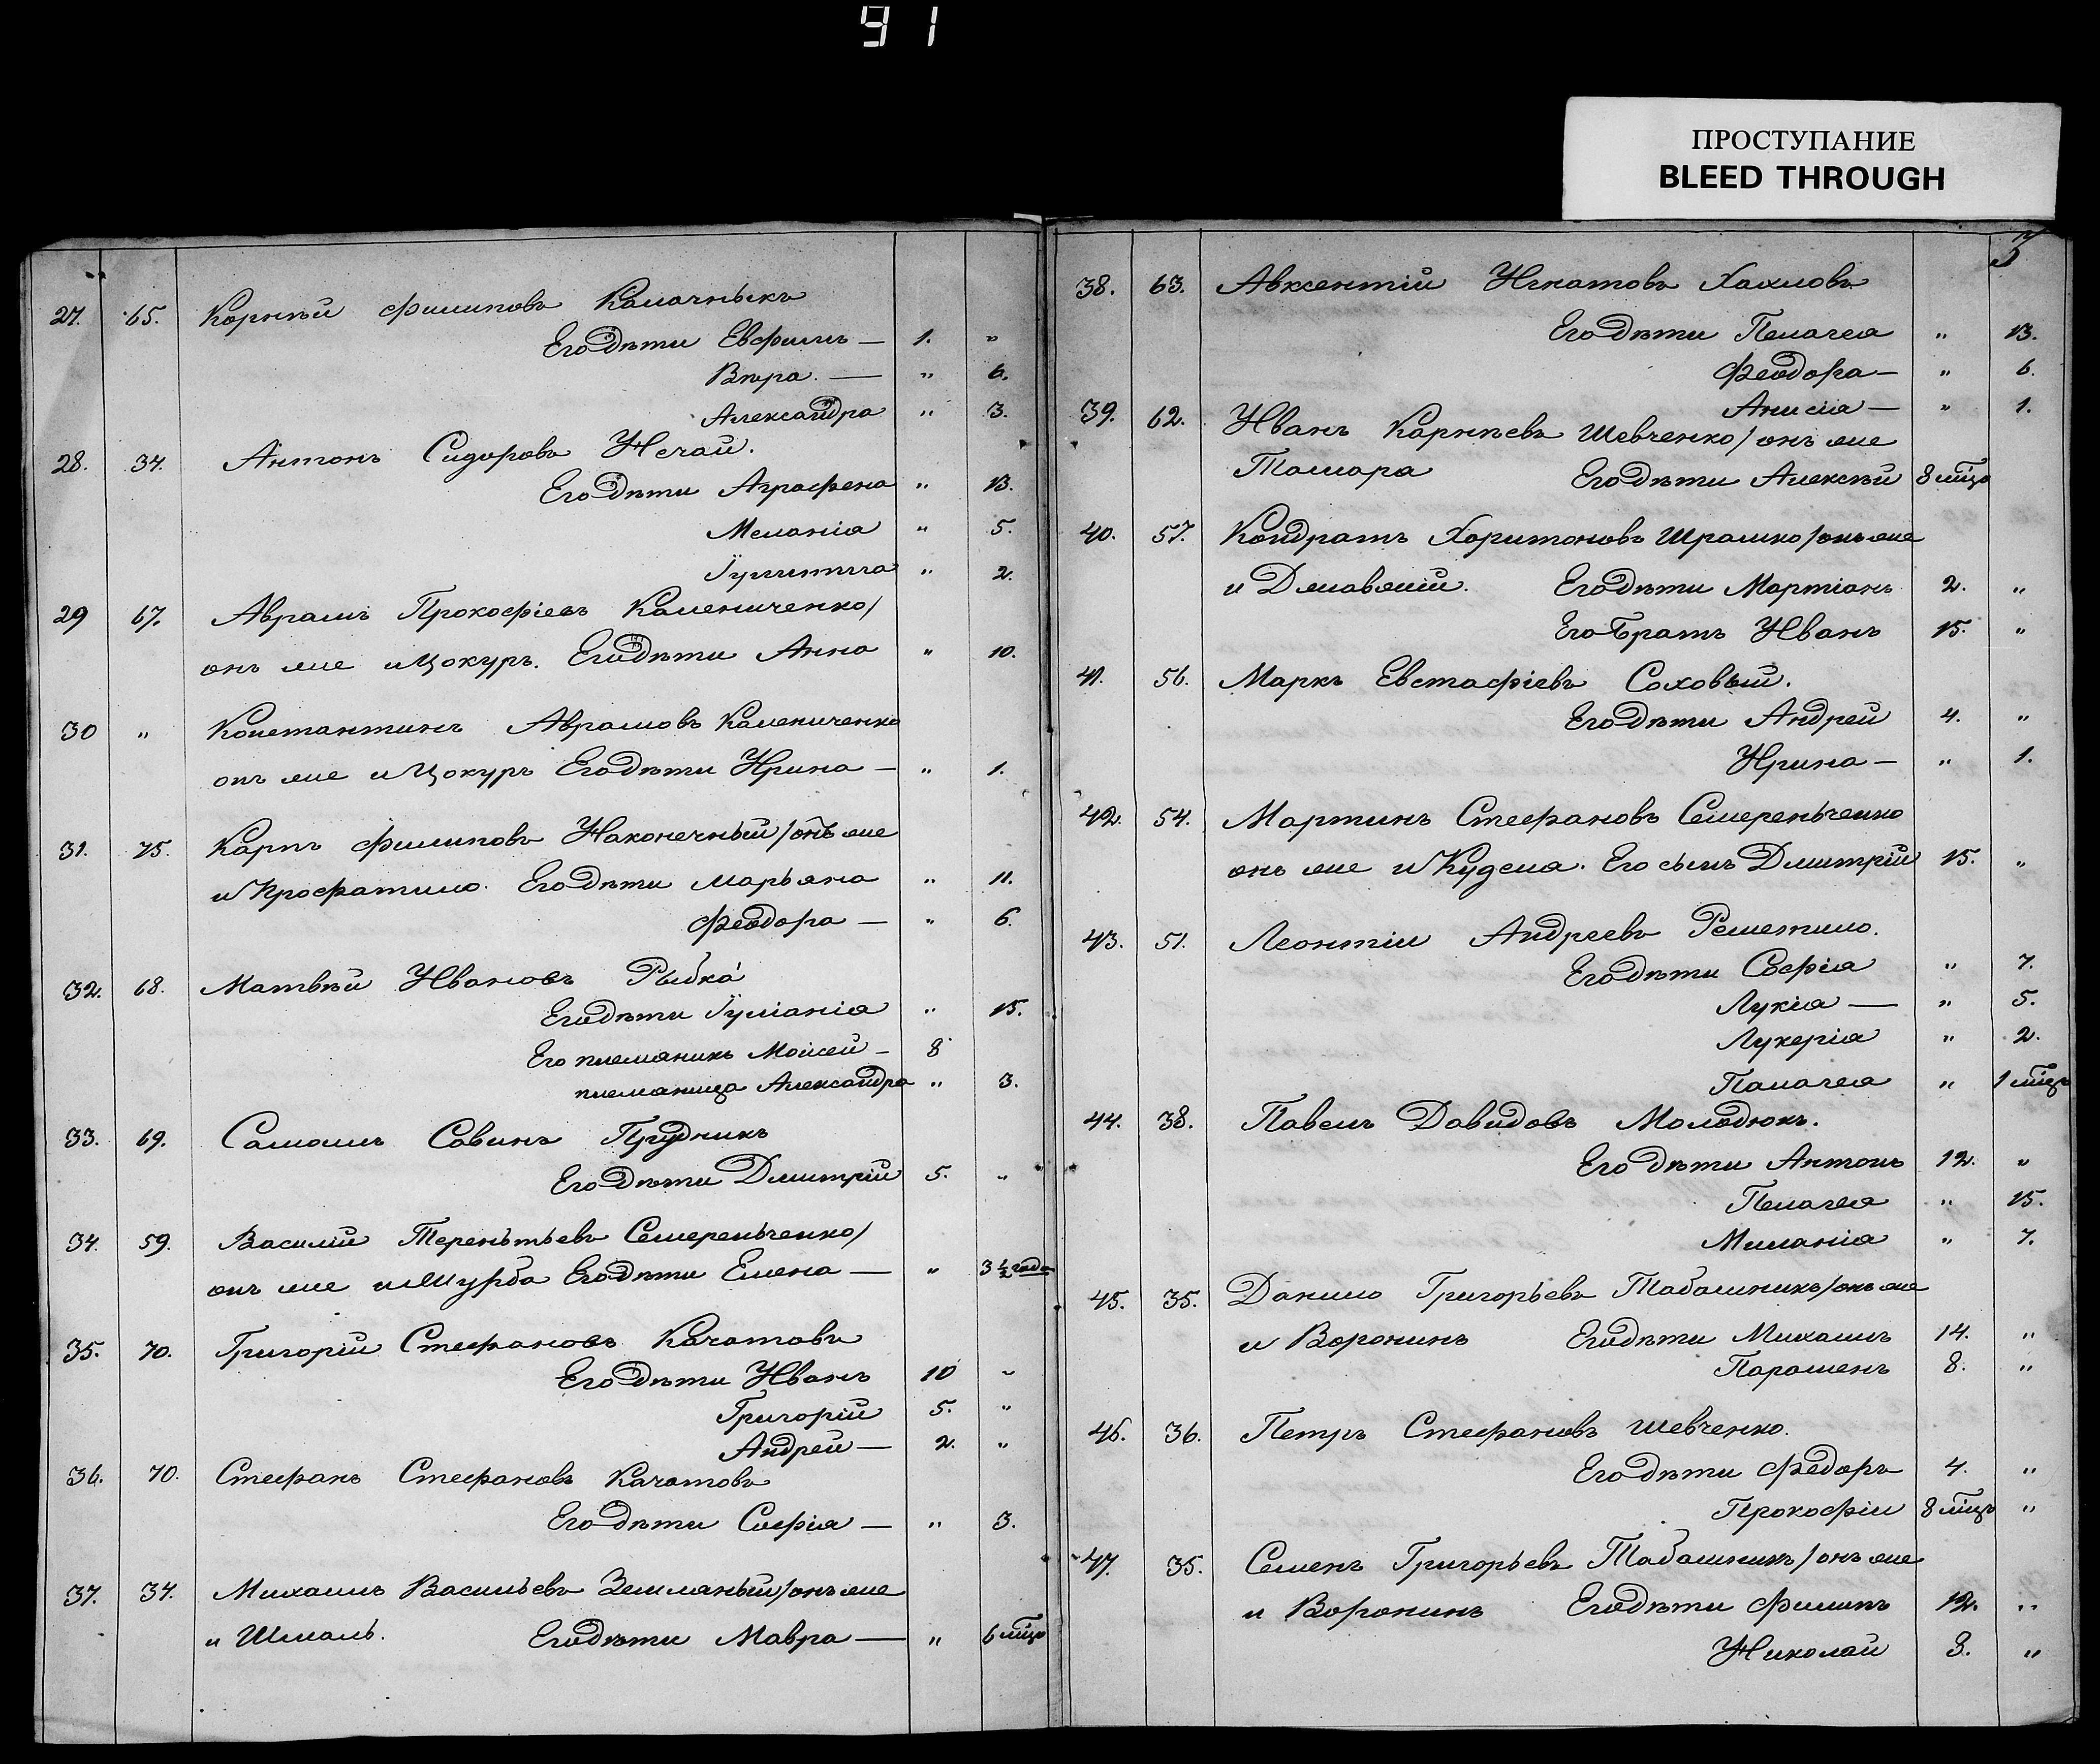 91
ПРОСТУПАНИЕ
BLEED THROUGH
27. 65. Корнѣй Филиповъ Калачныкъ
Его дѣти Евфимъ — 1. "
Вѣра. — " 6.
Александра " 3.
28. 34. Антонъ Сидоровъ Нечай.
Его дѣти Аграфена " 13.
Меланія " 5.
" 2.
29 67. Аврамъ Прокофіевъ Калениченко/
онъ же и Цокуръ. Его дѣти Анна " 10.
30 " Константинъ Аврамовъ Калениченко
онъ же и Цокуръ Его дѣти Ирина — " 1.
31. 75. Карпъ Филиповъ Наконечный/онъ же
и Крофатило. Его дѣти Марьяна " 11.
Феодора — " 6.
32. 68. Матвѣй Ивановъ Рыбка
Его дѣти Іуліанія " 15.
Его племяникъ Моисей — 8
племяница Александра " 3.
33. 69. Самоилъ Савинъ Прудникъ
Его дѣти Дмитрій 5. "
34. 59. Василій Терентьевъ Семереньченко/
онъ же и Шурба Его дѣти Елена — " 3 ½ года
35. 70. Григорій Стефановъ Качатовъ
Его дѣти Иванъ 10 "
Григорій 5. "
Андрей — 2. "
36. 70. Стефанъ Стефановъ Качатовъ
Его дѣти Софія — " 3.
37. 34. Михаилъ Васильевъ Земляный/онъ же
и Шмаль. Его дѣти Мавра — " 6 мѣц
3
38. 63. Авксентій Игнатовъ Хахловъ
Его дѣти Пелагея " 13.
Феодора — " 6.
Анисія — " 1.
39. 62. Иванъ Карнѣевъ Шевченко/онъ же
Ташара Его дѣти Алексѣй 8 мѣц
40. 57. Кондратъ Харитоновъ Шрамко/онъ же
и Его дѣти Мартіанъ 2. "
Его братъ Иванъ 15. "
41. 56. Маркъ Евстафіевъ Соховый.
Его дѣти Андрей 4. "
Ирина — " 1.
42. 54. Мартинъ Стефановъ Семереньченко
онъ же и Кудела. Его сынъ Дмитрій 15. "
43. 51. Леонтій Андреевъ Решетило.
Его дѣти Софія " 7.
Лукія — " 5.
Лукерія " 2.
Палагея " 1 мѣц
44. 38. Павелъ Давидовъ Молодюкъ.
Его дѣти Антонъ 12. "
Пелагея " 15.
Миланія " 7.
45. 35. Данило Григорьевъ Табашникъ/онъ же
и Воронинъ Его дѣти Михаилъ 14. "
Парамонъ 8. "
46. 36. Петръ Стефановъ Шевченко.
Его дѣти Федоръ 4. "
Прокофій 8 мѣц "
47. 35. Семенъ Григорьевъ Табашникъ/онъ же
и Воронинъ Его дѣти Филипъ 12. "
Николай 3. "